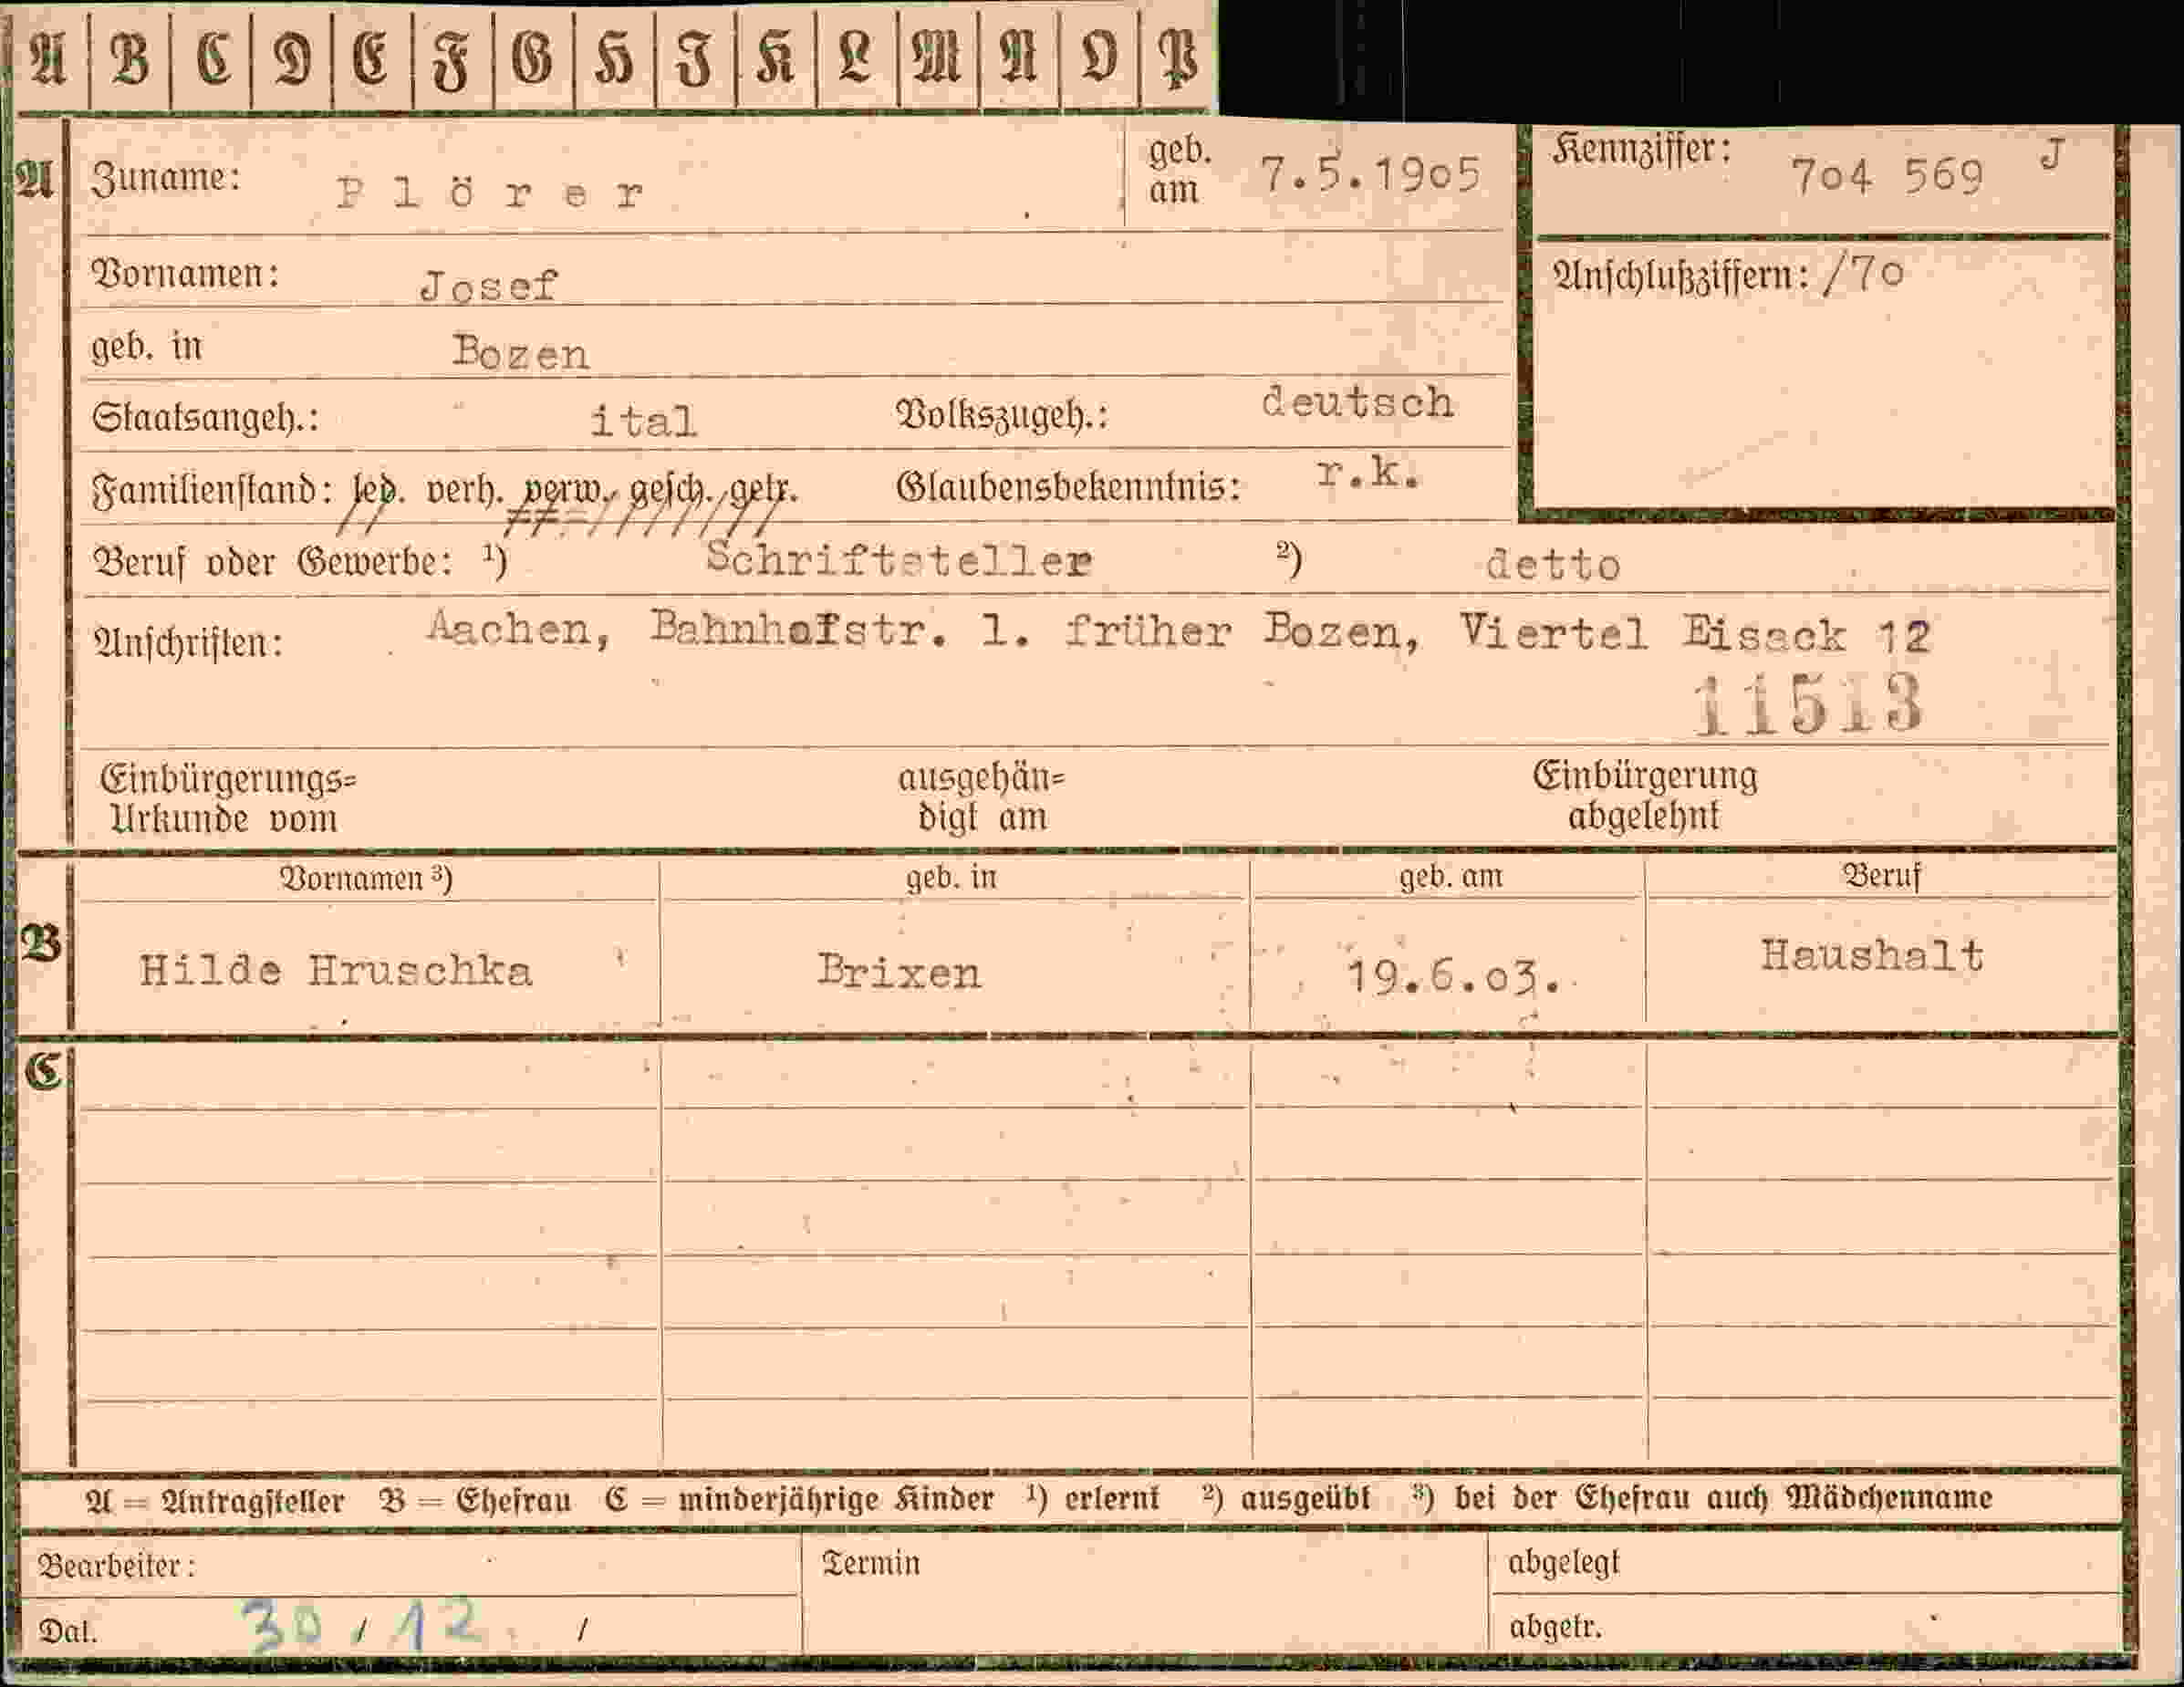 A B C D E F G H I K L M N O P
A Zuname: Plörer geb. am 7.5.1905 Kennziffer: 704 569 J
Vornamen: Josef Anschlußziffern: /70
geb. in Bozen
Staatsangeh.: ital Volkszugeh.: deutsch
Familienstand: led. verh. verw. gesch. getr. Glaubensbekenntnis: r.k.
Beruf oder Gewerbe: ¹) Schriftsteller ²) detto
Anschriften: Aachen, Bahnhofstr. 1. früher Bozen, Viertel Eisack 12
11513
Einbürgerungs= ausgehän= Einbürgerung
Urkunde vom digt am abgelehnt
Vornamen ³) geb. in geb. am Beruf
B Hilde Hruschka Brixen 19.6.03. Haushalt
C
A = Antragsteller B = Ehefrau C = minderjährige Kinder ¹) erlernt ²) ausgeübt ³) bei der Ehefrau auch Mädchenname
Bearbeiter: Termin abgelegt
Dat. 30 / 12 / abgetr.